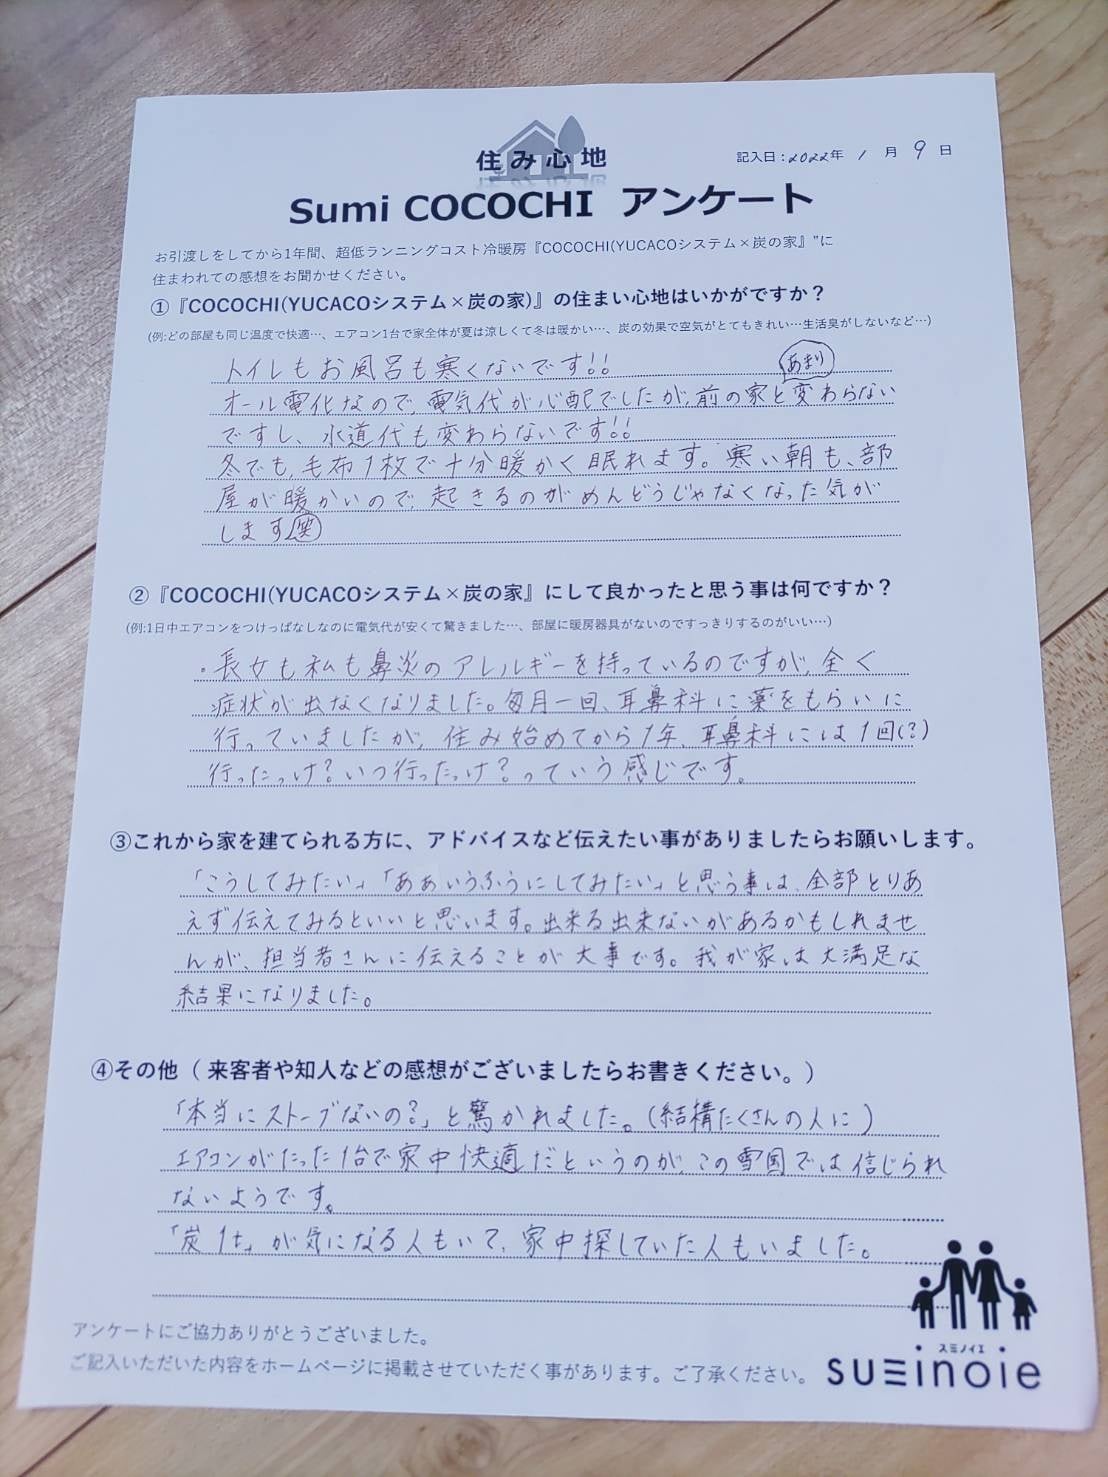 住み心地
記入日：2022年 1 月 9 日
Sumi COCOCHI アンケート
お引渡しをしてから1年間、超低ランニングコスト冷暖房『COCOCHI(YUCACOシステム×炭の家』"に
住まわれての感想をお聞かせください。
①『COCOCHI(YUCACOシステム×炭の家)』の住まい心地はいかがですか？
(例:どの部屋も同じ温度で快適…、エアコン1台で家全体が夏は涼しくて冬は暖かい…、炭の効果で空気がとてもきれい…生活臭がしないなど…)
トイレもお風呂も寒くないです!!
あまり
オール電化なので、電気代が心配でしたが、前の家と変わらない
ですし、水道代も変わらないです!!
冬でも、毛布1枚で十分暖かく眠れます。寒い朝も、部
屋が暖かいので、起きるのがめんどうじゃなくなった気が
します。笑
②『COCOCHI(YUCACOシステム×炭の家』にして良かったと思う事は何ですか？
(例:1日中エアコンをつけっぱなしなのに電気代が安くて驚きました…、部屋に暖房器具がないのですっきりするのがいい…)
・長女も私も鼻炎のアレルギーを持っているのですが、全く
症状が出なくなりました。毎月一回、耳鼻科に薬をもらいに
行っていましたが、住み始めてから1年、耳鼻科には1回(?)
行ったっけ?いつ行ったっけ?っていう感じです。
③これから家を建てられる方に、アドバイスなど伝えたい事がありましたらお願いします。
「こうしてみたい」「ああいうふうにしてみたい」と思う事は、全部とりあ
えず伝えてみるといいと思います。出来る出来ないがあるかもしれませ
んが、担当者さんに伝えることが大事です。我が家は大満足な
結果になりました。
④その他（来客者や知人などの感想がございましたらお書きください。）
「本当にストーブないの?」と驚かれました。(結構たくさんの人に)
エアコンがたった1台で家中快適だというのが、この雪国では信じられ
ないようです。
「炭1t」が気になる人もいて、家中探していた人もいました。
アンケートにご協力ありがとうございました。
ご記入いただいた内容をホームページに掲載させていただく事があります。ご了承ください。
スミノイエ
suminoie